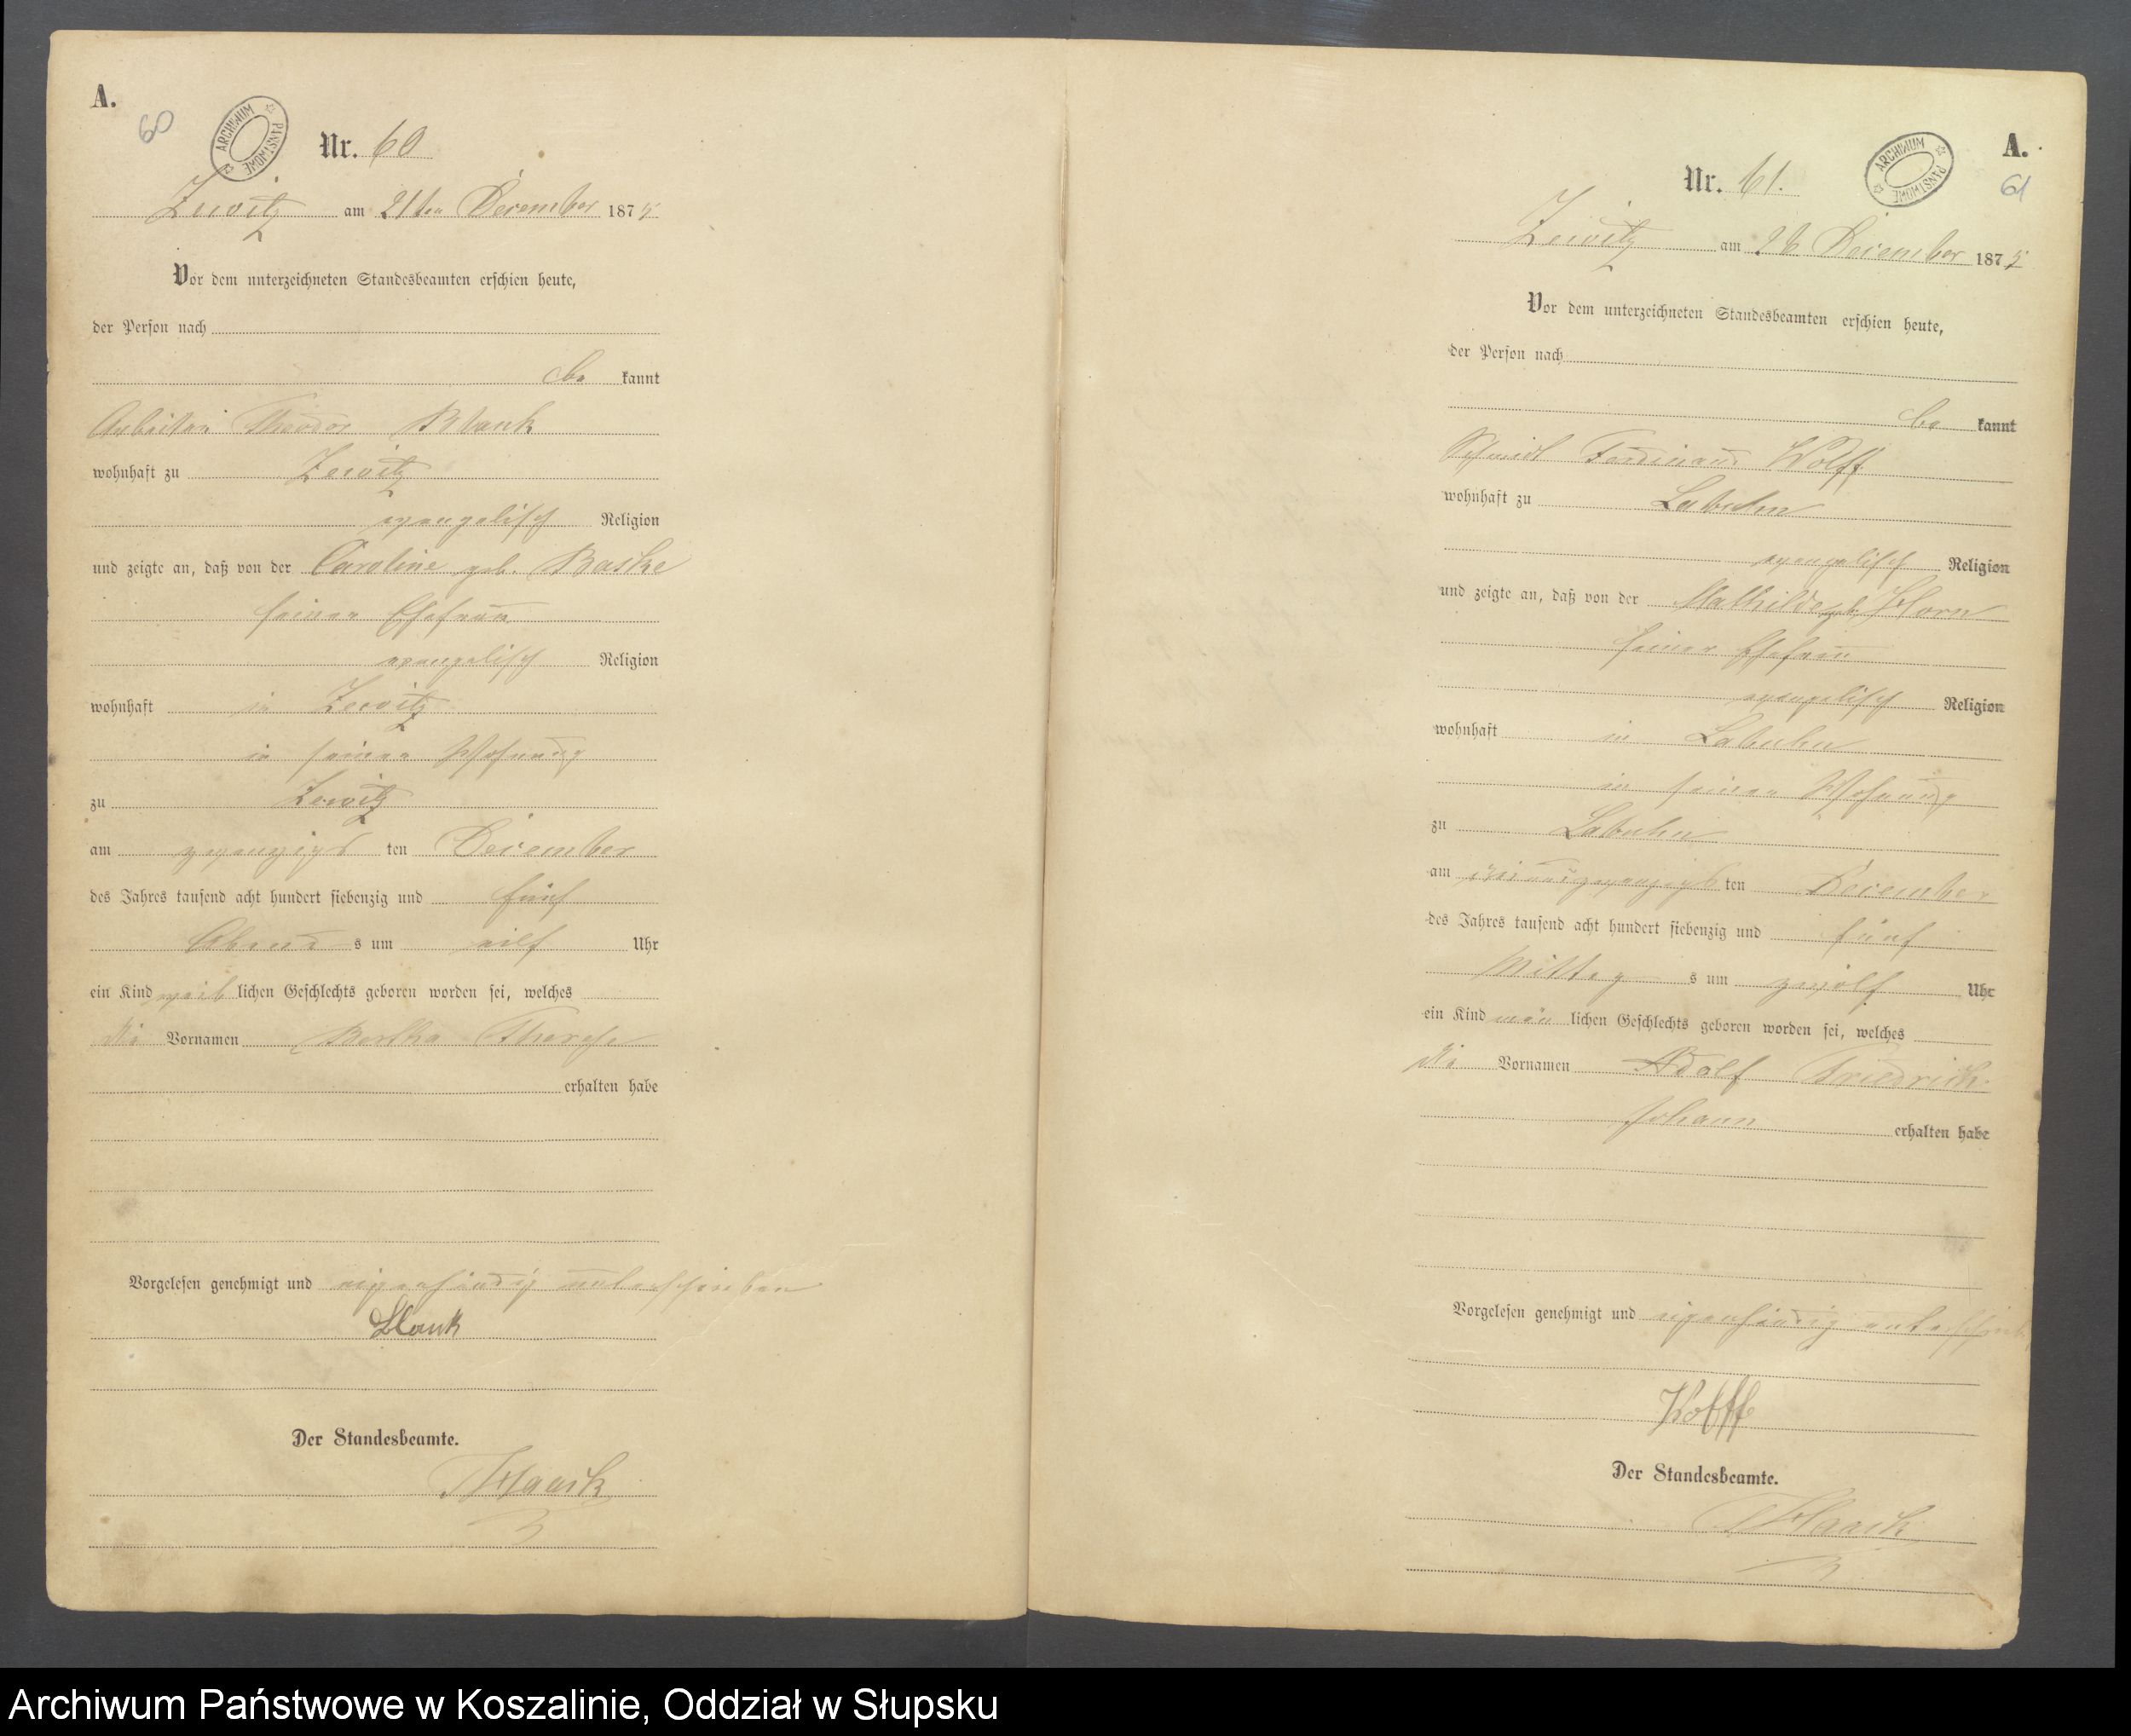 A.
60
ARCHIWUM PAŃSTWOWE
Nr. 60
Zewitz am 21ten December 1875
Vor dem unterzeichneten Standesbeamten erschien heute,
der Person nach
be kannt
Theodor Blank
wohnhaft zu Zewitz
evangelisch Religion
und zeigte an, daß von der Caroline geb. Baske
seiner Ehefrau
evangelisch Religion
wohnhaft in Zewitz
in seiner Wohnung
zu Zewitz
am zwanzigs ten December
des Jahres tausend acht hundert siebenzig und fünf
Abend s um eilf Uhr
ein Kind weib lichen Geschlechts geboren worden sei, welches
die Vornamen Bertha Therese
erhalten habe
Vorgelesen genehmigt und eigenhändig unterschrieben
Blank
Der Standesbeamte.
Haack
A.
61
ARCHIWUM PAŃSTWOWE
Nr. 61.
Zewitz am December 1875
Vor dem unterzeichneten Standesbeamten erschien heute,
der Person nach
be kannt
Schmidt Ferdinand Wolff
wohnhaft zu Labuhn
evangelisch Religion
und zeigte an, daß von der Mathilde geb. Horn
seiner Ehefrau
evangelisch Religion
wohnhaft in Labuhn
in seiner Wohnung
zu Labuhn
am ten December
des Jahres tausend acht hundert siebenzig und fünf
Mittag s um zwölf Uhr
ein Kind män lichen Geschlechts geboren worden sei, welches
die Vornamen Adolf Friedrich
Johann erhalten habe
Vorgelesen genehmigt und eigenhändig
Wolff
Der Standesbeamte.
Haack
Archiwum Państwowe w Koszalinie, Oddział w Słupsku